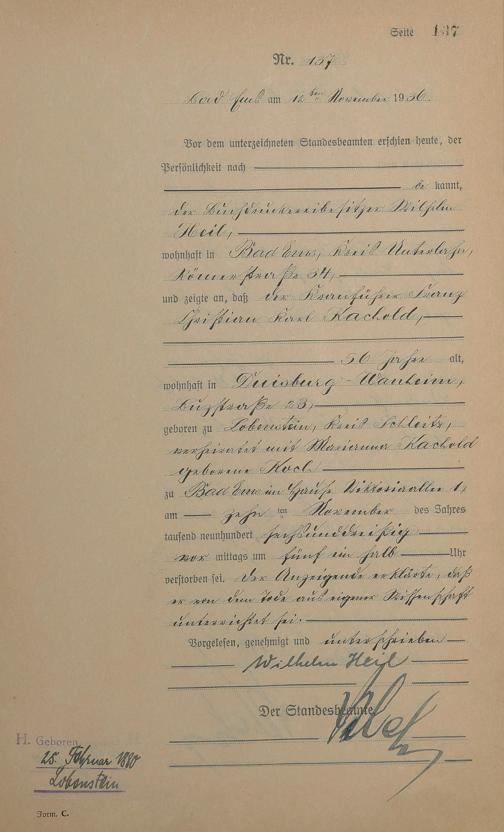 Seite 137
Nr. 137
Bad Ems am 12ten November 1936.
Vor dem unterzeichneten Standesbeamten erschien heute, der
Persönlichkeit nach
be kannt,
der Buchdruckereibesitzer Wilhelm
Heil,
wohnhaft in Bad Ems, Kreis Unterlahn,
Römerstraße 54,
und zeigte an, daß der Kranführer Franz
Christian Karl Kachold,
56 Jahre alt,
wohnhaft in Duisburg-Wanheim,
23,
geboren zu Lobenstein, Kreis Schleitz,
verheiratet mit Marianna Kachold
geborene Koch
zu Bad Ems im Hause Viktoriaallee 1,
am zehn ten November des Jahres
tausend neunhundert sechsunddreißig
vor mittags um fünf ein halb Uhr
verstorben sei. Der Anzeigende erklärte, daß
er von dem Tode aus eigener Wissenschaft
unterrichtet sei.
Vorgelesen, genehmigt und unterschrieben
Wilhelm Heil
Der Standesbeamte
H. Geboren
25. Februar 1880
Lobenstein
Form. C.